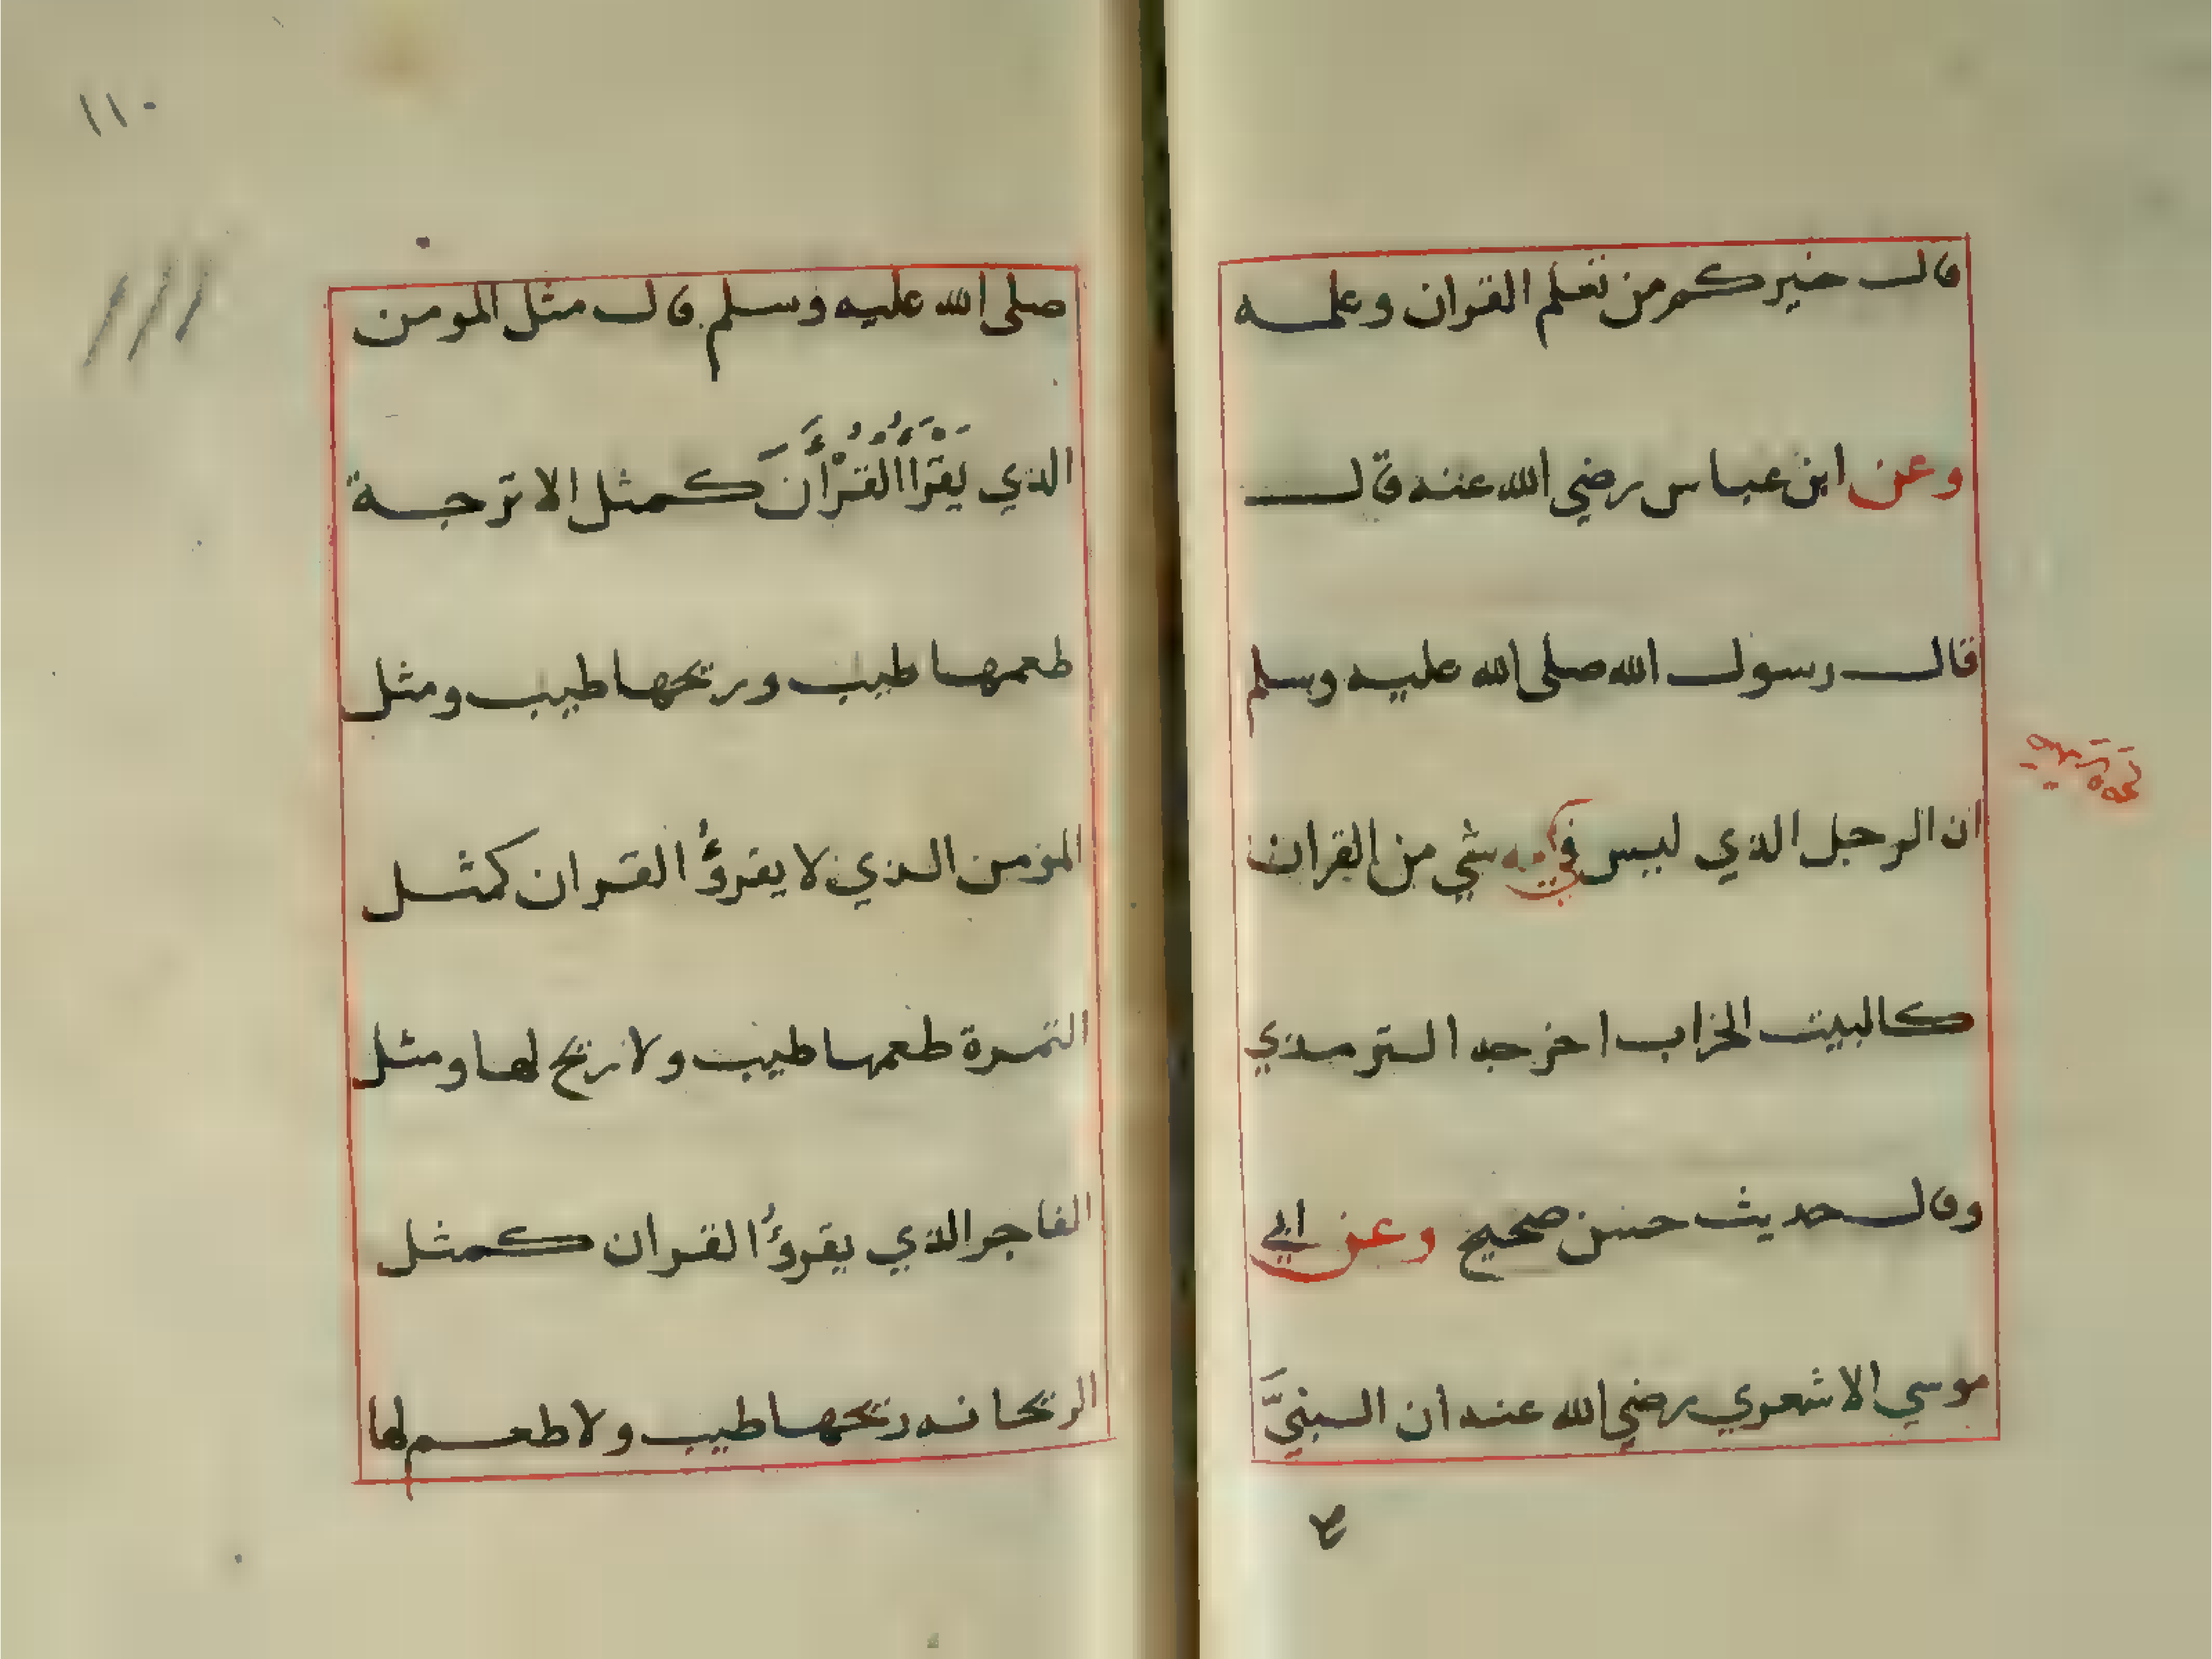 قال خيركم من تعلم القران وعلمه
وعن ابن عباس رضي الله عنه قال
قال رسول الله صلى الله عليه وسلم
ان الرجل الذي ليس في جوفه شي من القران
كالبيت الخراب اخرجه الترمذي
وقال حديث حسن صحيح وعن ابي
موسي الاشعري رضي الله عنه ان النبيَّ
١١٠
صلى الله عليه وسلم قال مثل المومن
الذي يَقْرَأُ القُرْأَنَ كمثل الاترجة
طعمها طيب وريحها طيب ومثل
المؤمن الذي لا يقرؤُ القران كمثل
التمرة طعمها طيب ولا ريح لها ومثل
الفاجر الذي يقرؤُ القران كمثل
الريحانه ريحها طيب ولا طعم لها